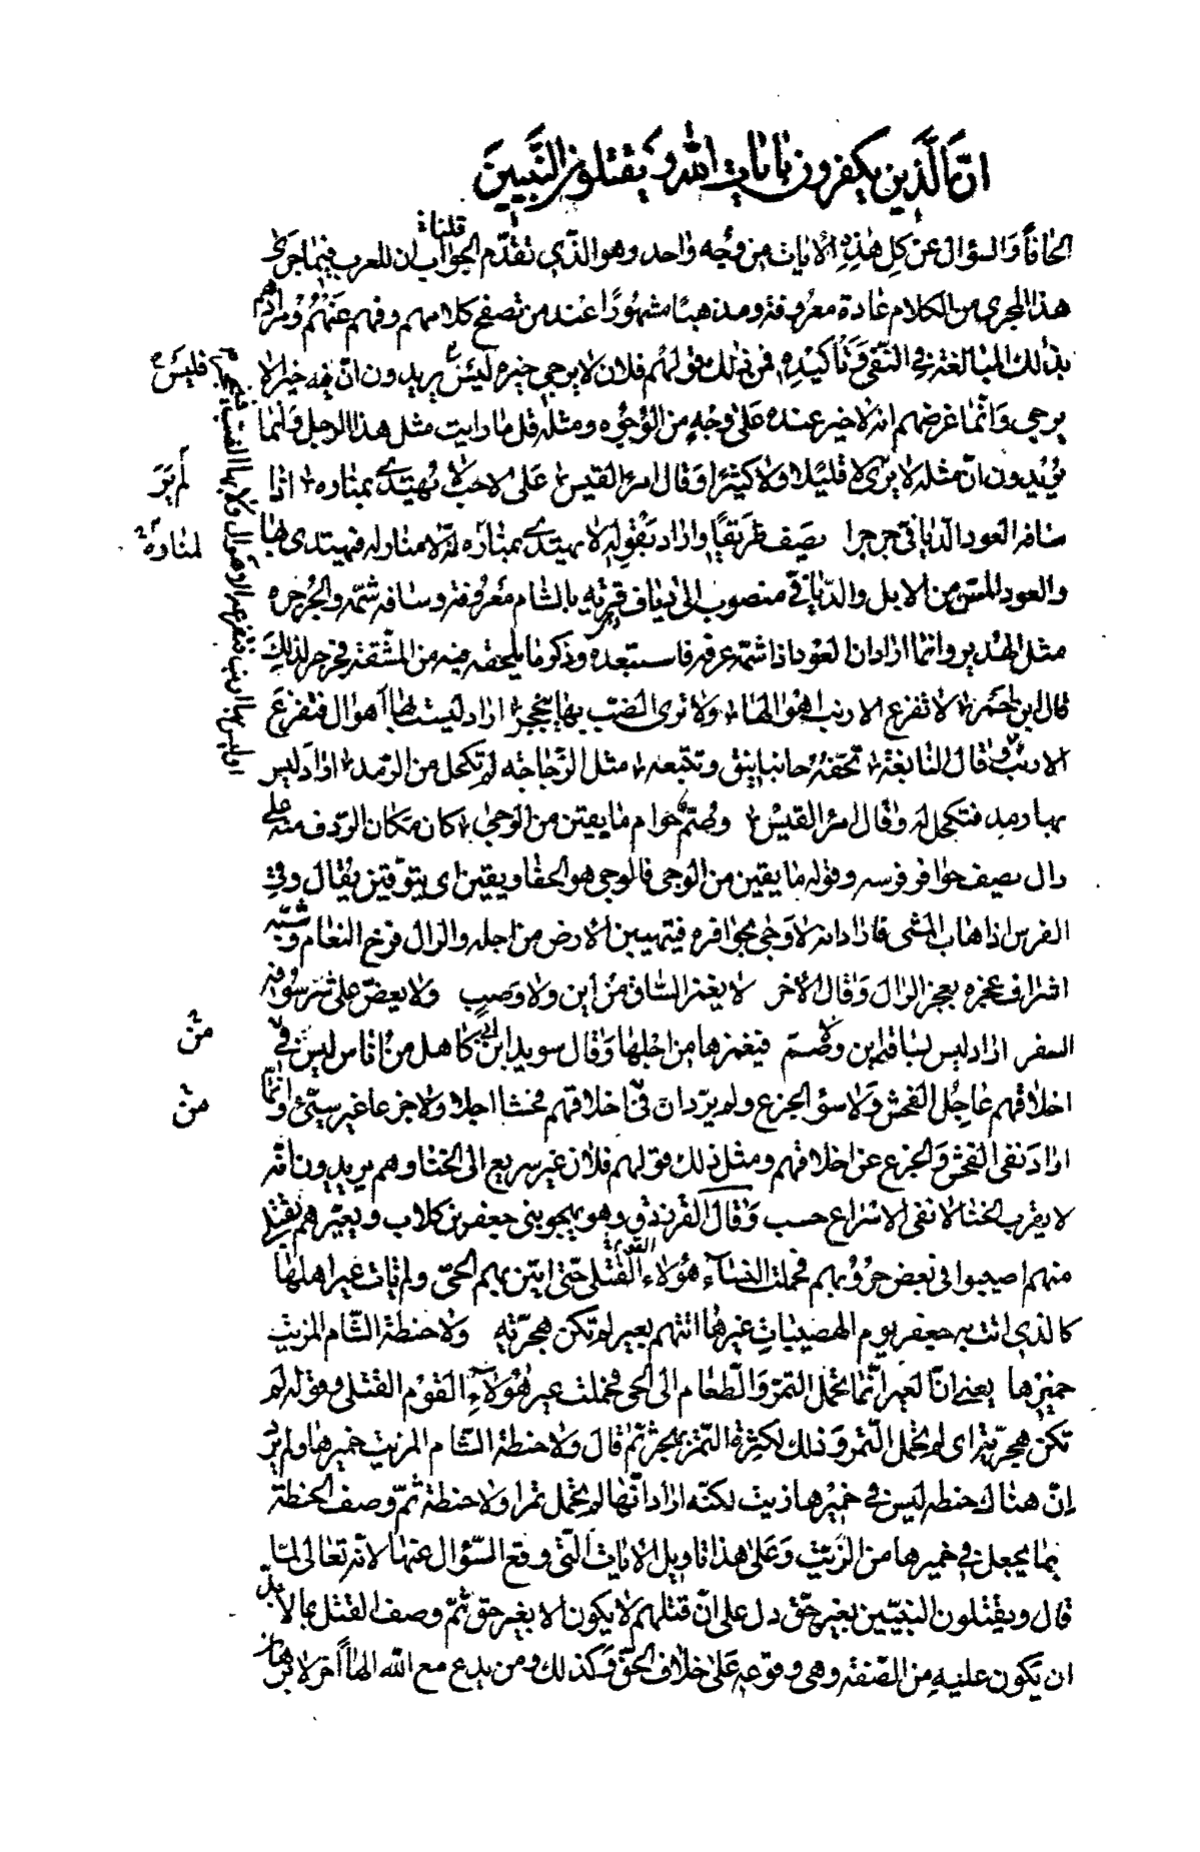 انّ الَّذين يكفرون بايات الله ويقتلون النّبيينَ
الحافاً وَالسؤال عن كل هٰذِهِ الأيات من وجه واحد وهو الذّي تقدّم الجواب قلنا ان للعرب فيما جرىٰ
هذا المجرى من الكلام عادة معروفة ومذهبًا مشهُورًا عند من تصفح كلامهم وفهم عَنهُم ومرادهم
بذلك المبالغة في النّفى وَتاكيدِه فمن ذلك قولهُم فلان لا يرجى خيره ليسَ يريدون انّ فيه خيرا لا
يرجى وَانّما غرضهم انه لا خير عنده عَلى وجْهٍ من الوُجُوه ومثله قل ما رايت مثل هذا الرجل وَانما
يُريدون انّ مثله لا يُرىٰ لا قليلا ولا كثيرًا وَقال امرؤ القيس عَلى لاحب لا يُهتدىٰ بمناره اذا
سافه العود الدّيافىّ جرجرا يصَف طريقًا واراد بقوله لا يهتدىٰ بمناره انّه لا منار له فيهتدى بها
والعود المسنّ من الابل والدّيافىّ منصوب الىٰ دياف قريه بالشام معروفة وسافه شمّه والجرجره
مثل الهدير وانّما اراد ان العَود اذا شمّه عرفه فاستبعده وذكر ما يلحقه فيه من المشّقة فجرجر لذلِكَ
قال ابن احمر لا تفزع الارنب اهوالها ولا ترى الضب بها ينجحر اراد ليست بها اهوال فتفزعَ
الارنب وَقال النابغة تحفّهُ جانبا نيق وتتبعه مثل الزّجاجة لم تكحل من الرّمد اراد ليس
بها رمد فتكحل له وقال امرؤ القيس وصُمّ حَوام ما يقين من الوجىٰ كان مكان الرّدف منه على
رال يصيف حوافر فرسه وقوله ما يقين من الوجى فالوجى هو الحفا ويقين اى يتوقّين يُقال وقي
الفرس اذا هاب المشى فاراد انه لا وَجٰى بحوافره فيتهيبن الأرض من اجله والرال فرخ النعام وشبّه
اشراف عجزه بعجز الرال وَقال الأخر لا يغمز السّاق من أين ولا وصَبٍ ولا يعضّ على شرسُوفه
الصفر اراد ليس بساقه اين ولا وصب فيغمزها من اجلها وَقال سويد ابن ابي كاهل من اناس ليس في
اخلاقهم عاجُل الفحش وَلا سؤ الجزع ولم يرد ان في اخلاقهم فحشا اجلا ولا جزعا غير سيّئ وانّما
اراد نفى الفحش وَالجزع عن اخلاقهم ومثل ذلك قولهم فلان غير سريع الى الخنا وهم يريدون انّه
لا يقرب الخنا لا نفى الاسراع حسب وَقالَ الفرزدق وهو يهجو بنى جعفر بن كلاب ويعيّرهم بقتلىٰ
منهم اصيبوا فى بعض حرُوبهم فحملت النسَاء هؤلاء القتلى حتى اتين بهم الحىّ ولم تات عير اهلها
كالذي اتت به جعفر يوم الهضيبات عيرها اتتهم بعير لم تكن هجرّيّه ولا حنطة الشّام المزيت
خميرها يعنى انّ العير انّما تحمل التمر وَالطّعام الى الحى فحملت عير هٰؤلاءِ القوْم القتلى وقوله لم
تكن هجريّة اى لم تحمل التّمر وَذلك لكثرة التّمر بهجر ثم قالَ ولا حنطة الشّام المزيت خميرها ولم يُرد
انّ هناك حنطه ليس في خميرها زيت لكنّه اراد انّها لم تحمل تمرا ولا حنطة ثمّ وصف الحنطة
بما يجعل في خميرها من الزّيت وَعَلىٰ هذا تاويل الايات الّتى وقع السّؤال عنها لانّه تعالى لمّا
قال ويقتلون النبيّين بغير حقّ دل على انّ قتلهم لا يكون الا بغير حق ثمّ وصف القتل بما لا بدّ
ان يكون عليهِ من الصّفة وهى وقوعه عَلىٰ خلاف الحقّ وَكذلك ومن يدع مع الله الهاً اخر لا برهان
فليسَ
لم يَرَ
لمناره
منْ
منْ